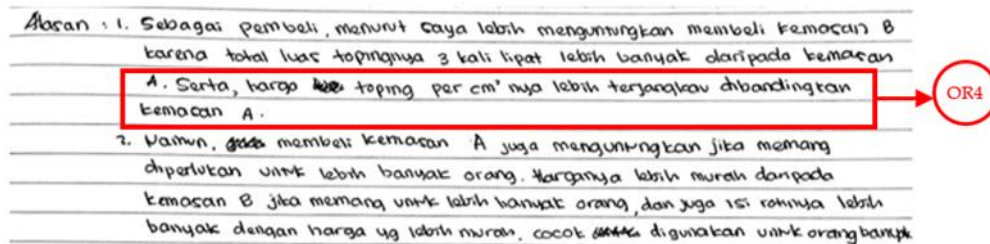 Alasan : 1. Sebagai pembeli, menurut saya lebih menguntungkan membeli kemasan B
karena total luas topingnya 3 kali lipat lebih banyak daripada kemasan
A. Serta, harga toping per cm² nya lebih terjangkau dibandingkan
kemasan A.
OR4
2. Namun, membeli kemasan A juga menguntungkan jika memang
diperlukan untuk lebih banyak orang. Harganya lebih murah daripada
kemasan B jika memang untuk lebih banyak orang, dan juga isi rotinya lebih
banyak dengan harga yg lebih murah, cocok digunakan untuk orang banyak